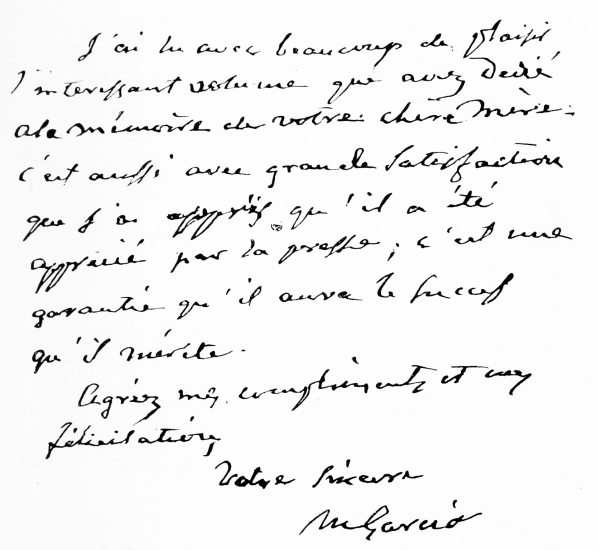 J'ai lu avec beaucoup de plaisir
l'interessant volume que avez dedié
a la mémoire de votre chère mère.
c'est aussi avec grande satisfaction
que j'ai appris qu'il a été
apprécié par la presse ; c'est une
garantie qu'il aura le succes
qu'il mérite.
Agréez mes compliments et mes
félicitations,
Votre sincere
M Garcia